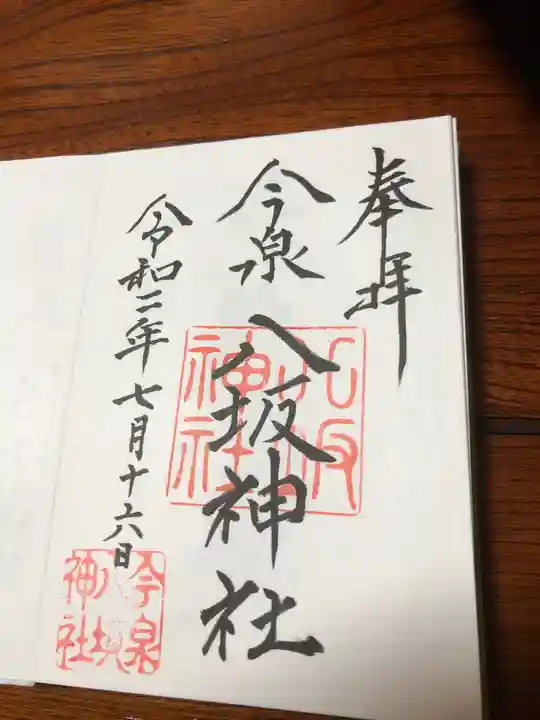 奉拝
今泉
八坂神社
令和二年七月十六日
八坂
神社
今泉
八坂
神社